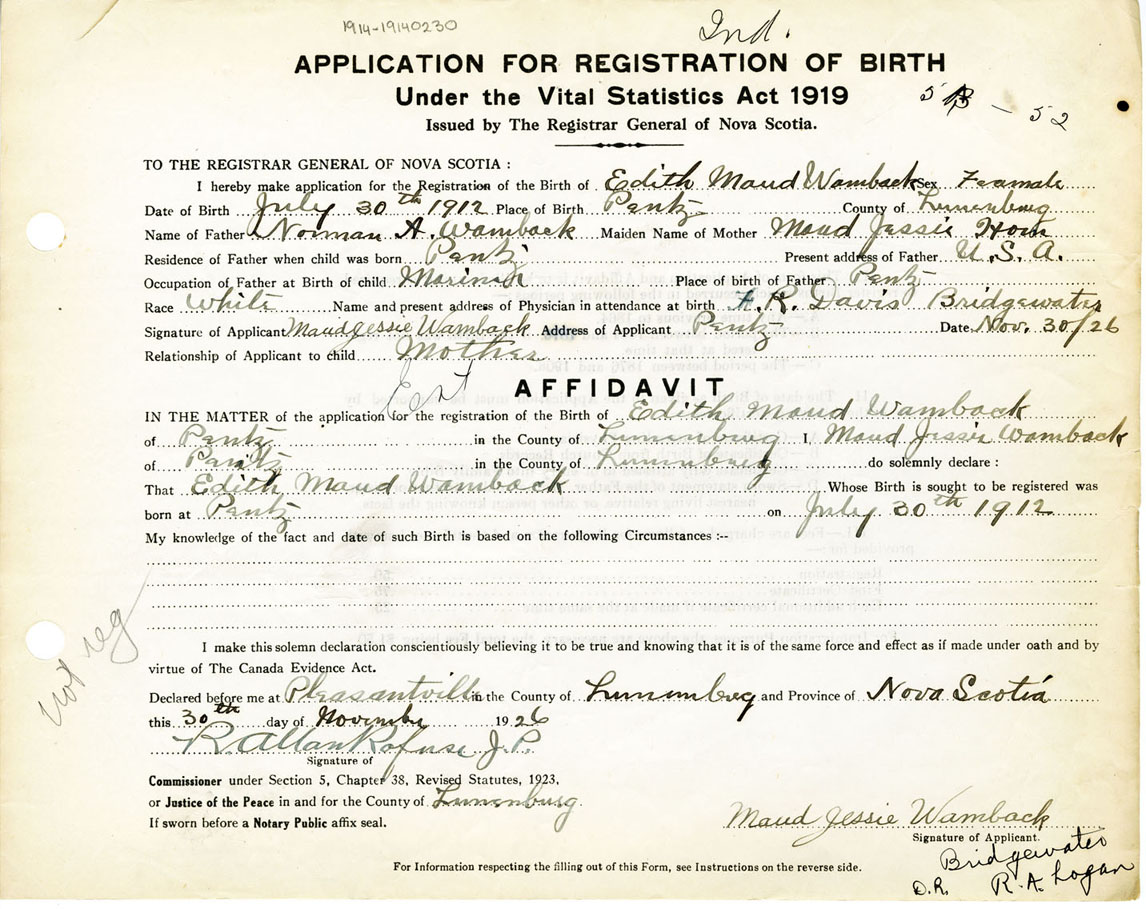 1914-19140230
Ind.
APPLICATION FOR REGISTRATION OF BIRTH
Under the Vital Statistics Act 1919
5 - 52
Issued by The Registrar General of Nova Scotia.
TO THE REGISTRAR GENERAL OF NOVA SCOTIA :
I hereby make application for the Registration of the Birth of Edith Maud Wamback Sex Feamale
Date of Birth July 30th 1912 Place of Birth Pentz County of Lunenburg
Name of Father Norman A. Wamback Maiden Name of Mother Maud Jessie
Residence of Father when child was born Pentz Present address of Father U.S.A.
Occupation of Father at Birth of child Mariner Place of birth of Father Pentz
Race White Name and present address of Physician in attendance at birth R. Davis Bridgewater
Signature of Applicant Maud Jessie Wamback Address of Applicant Pentz Date Nov. 30/26
Relationship of Applicant to child Mother
AFFIDAVIT
IN THE MATTER of the application for the registration of the Birth of Edith Maud Wamback
of Pentz in the County of Lunenburg I, Maud Jessie Wamback
of Pentz in the County of Lunenburg do solemnly declare :
That Edith Maud Wamback Whose Birth is sought to be registered was
born at Pentz on July 30th 1912
My knowledge of the fact and date of such Birth is based on the following Circumstances :--
not reg
I make this solemn declaration conscientiously believing it to be true and knowing that it is of the same force and effect as if made under oath and by
virtue of The Canada Evidence Act.
Declared before me at Pleasantville in the County of Lunenburg and Province of Nova Scotia
this 30th day of November 1926
R Allan Rafuse J.P.
Signature of
Commissioner under Section 5, Chapter 38, Revised Statutes, 1923,
or Justice of the Peace in and for the County of Lunenburg.
If sworn before a Notary Public affix seal.
Maud Jessie Wamback
Signature of Applicant.
For Information respecting the filling out of this Form, see Instructions on the reverse side.
Bridgewater
D.R. R.A. Logan